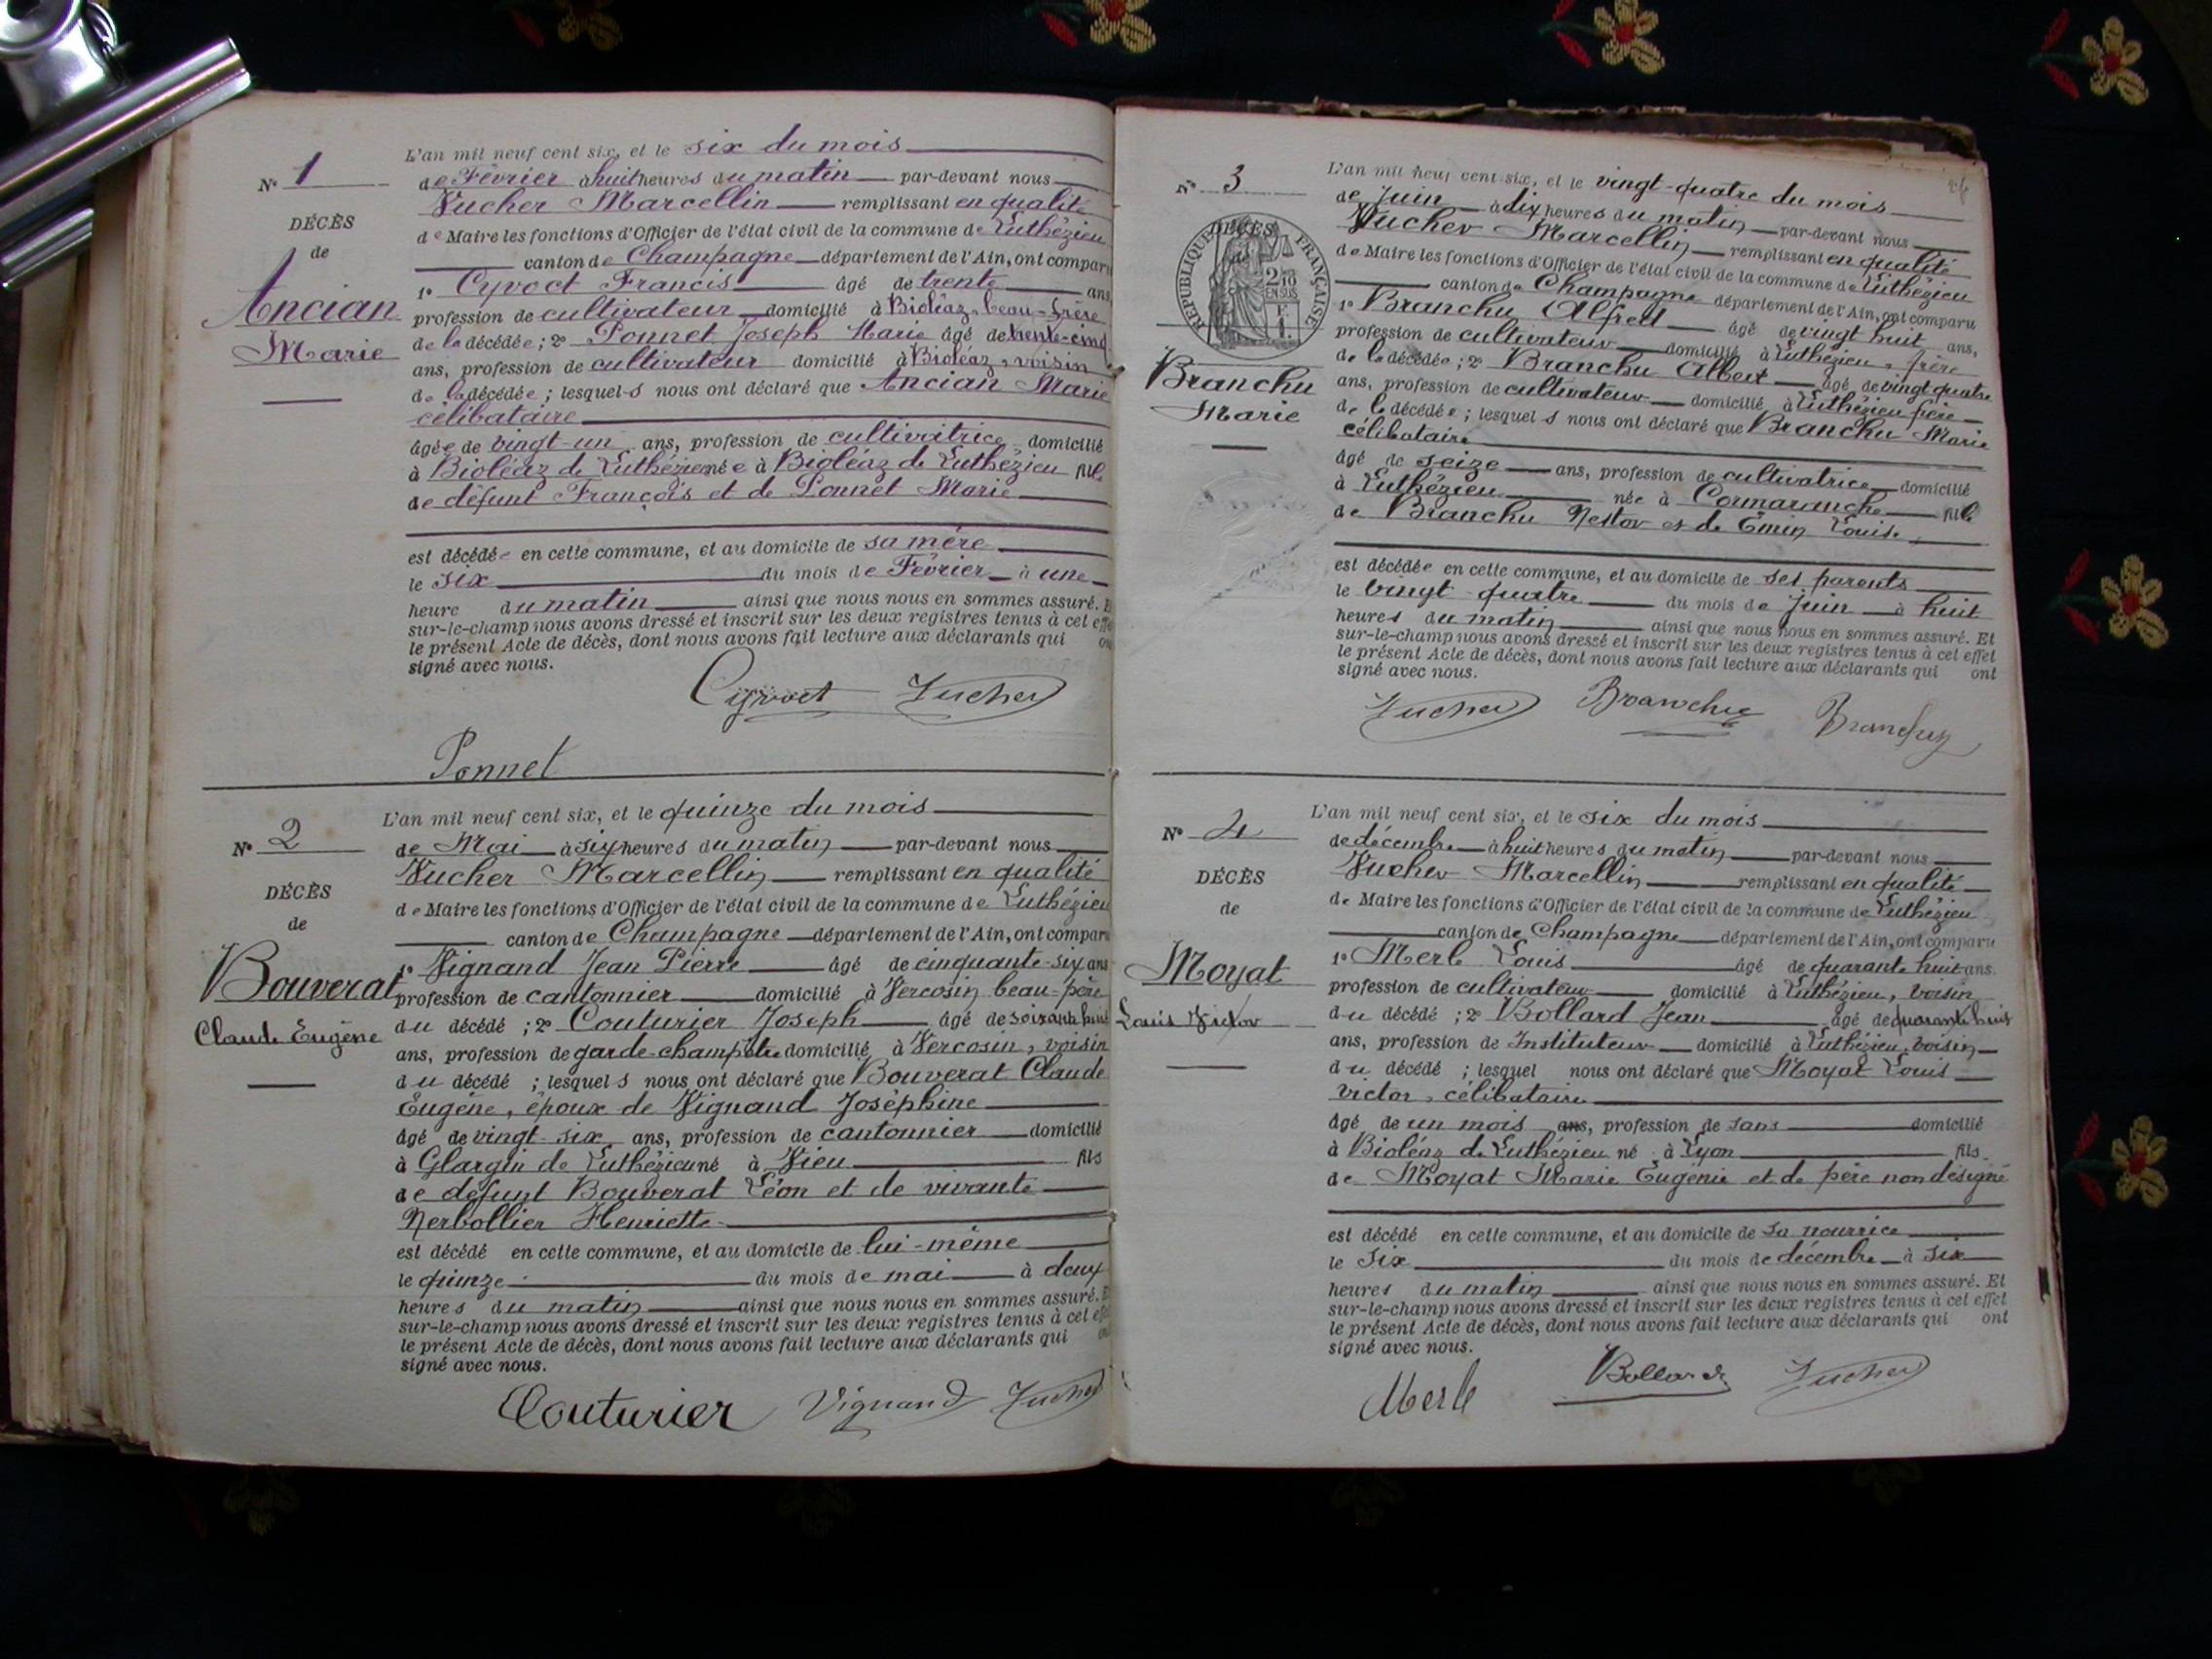 N° 1
DÉCÈS
de
Ancian
Marie
L'an mil neuf cent six, et le six du mois
de Février à huit heures du matin par-devant nous
Vucher Marcellin remplissant en qualité
de Maire les fonctions d'Officier de l'état civil de la commune de Luthézieu
canton de Champagne département de l'Ain, ont comparu
1° Cyvoct Francis âgé de trente ans
profession de cultivateur domicilié à Bioléaz, beau-frère
de la décédée ; 2° Ponnet Joseph Marie âgé de trente-cinq
ans, profession de cultivateur domicilié à Bioléaz, voisin
de la décédée ; lesquels nous ont déclaré que Ancian Marie
célibataire
âgée de vingt-un ans, profession de cultivatrice domicilié
à Bioléaz de Luthézieu née à Bioléaz de Luthézieu fille
de défunt François et de Ponnet Marie
est décédée en cette commune, et au domicile de sa mère
le six du mois de Février à une
heure du matin ainsi que nous nous en sommes assuré. E
sur-le-champ nous avons dressé et inscrit sur les deux registres tenus à cet effe
le présent Acte de décès, dont nous avons fait lecture aux déclarants qui on
signé avec nous.
Cyvoct Vucher
Ponnet
N° 2
DÉCÈS
de
Bouverat
Claude Eugène
L'an mil neuf cent six, et le quinze du mois
de Mai à six heures du matin par-devant nous
Vucher Marcellin remplissant en qualité
de Maire les fonctions d'Officier de l'état civil de la commune de Luthézieu
canton de Champagne département de l'Ain, ont comparu
1° Vignand Jean Pierre âgé de cinquante-six ans
profession de cantonnier domicilié à Vercosin beau-père
du décédé ; 2° Couturier Joseph âgé de soixante huit
ans, profession de garde-champêtre domicilié à Vercosin, voisin
du décédé ; lesquels nous ont déclaré que Bouverat Claude
Eugène, époux de Vignand Joséphine
âgé de vingt-six ans, profession de cantonnier domicilié
à Glargin de Luthézieu né à Vieu fils
de défunt Bouverat Léon et de vivante
Nerbollier Henriette
est décédé en cette commune, et au domicile de lui-même
le quinze du mois de mai à deux
heures du matin ainsi que nous nous en sommes assuré. E
sur-le-champ nous avons dressé et inscrit sur les deux registres tenus à cet effe
le présent Acte de décès, dont nous avons fait lecture aux déclarants qui on
signé avec nous.
Couturier Vignand Vucher
N° 3
DÉCÈS
de
RÉPUBLIQUE FRANÇAISE
2/10 EN SUS
Branchu
Marie
L'an mil neuf cent six, et le vingt-quatre du mois
de Juin à dix heures du matin par-devant nous
Vucher Marcellin remplissant en qualité
de Maire les fonctions d'Officier de l'état civil de la commune de Luthézieu
canton de Champagne département de l'Ain, ont comparu
1° Branchu Alfred âgé de vingt huit ans,
profession de cultivateur domicilié à Luthézieu, frère
de la décédée ; 2° Branchu Albert âgé de vingt quatre
ans, profession de cultivateur domicilié à Luthézieu frère
de la décédée ; lesquels nous ont déclaré que Branchu Marie
célibataire
âgé de seize ans, profession de cultivatrice domicilié
à Luthézieu née à Cormaranche fille
de Branchu Nestor et de Émin Louise
est décédée en cette commune, et au domicile de ses parents
le vingt-quatre du mois de juin à huit
heures du matin ainsi que nous nous en sommes assuré. Et
sur-le-champ nous avons dressé et inscrit sur les deux registres tenus à cet effet
le présent Acte de décès, dont nous avons fait lecture aux déclarants qui ont
signé avec nous.
Vucher Branchu Branchu
N° 4
DÉCÈS
de
Moyat
Louis Victor
L'an mil neuf cent six, et le six du mois
de décembre à huit heures du matin par-devant nous
Vucher Marcellin remplissant en qualité
de Maire les fonctions d'Officier de l'état civil de la commune de Luthézieu
canton de Champagne département de l'Ain, ont comparu
1° Merle Louis âgé de quarante huit ans.
profession de cultivateur domicilié à Luthézieu, voisin
du décédé ; 2° Bollard Jean âgé de quarante huit
ans, profession de Instituteur domicilié à Luthézieu, voisin
du décédé ; lesquel nous ont déclaré que Moyat Louis
victor, célibataire
âgé de un mois ans, profession de sans domicilié
à Bioléaz de Luthézieu né à Lyon fils
de Moyat Marie Eugénie et de père non désigné
est décédé en cette commune, et au domicile de sa nourrice
le six du mois de décembre à six
heures du matin ainsi que nous nous en sommes assuré. Et
sur-le-champ nous avons dressé et inscrit sur les deux registres tenus à cet effet
le présent Acte de décès, dont nous avons fait lecture aux déclarants qui ont
signé avec nous.
Merle Bollard Vucher